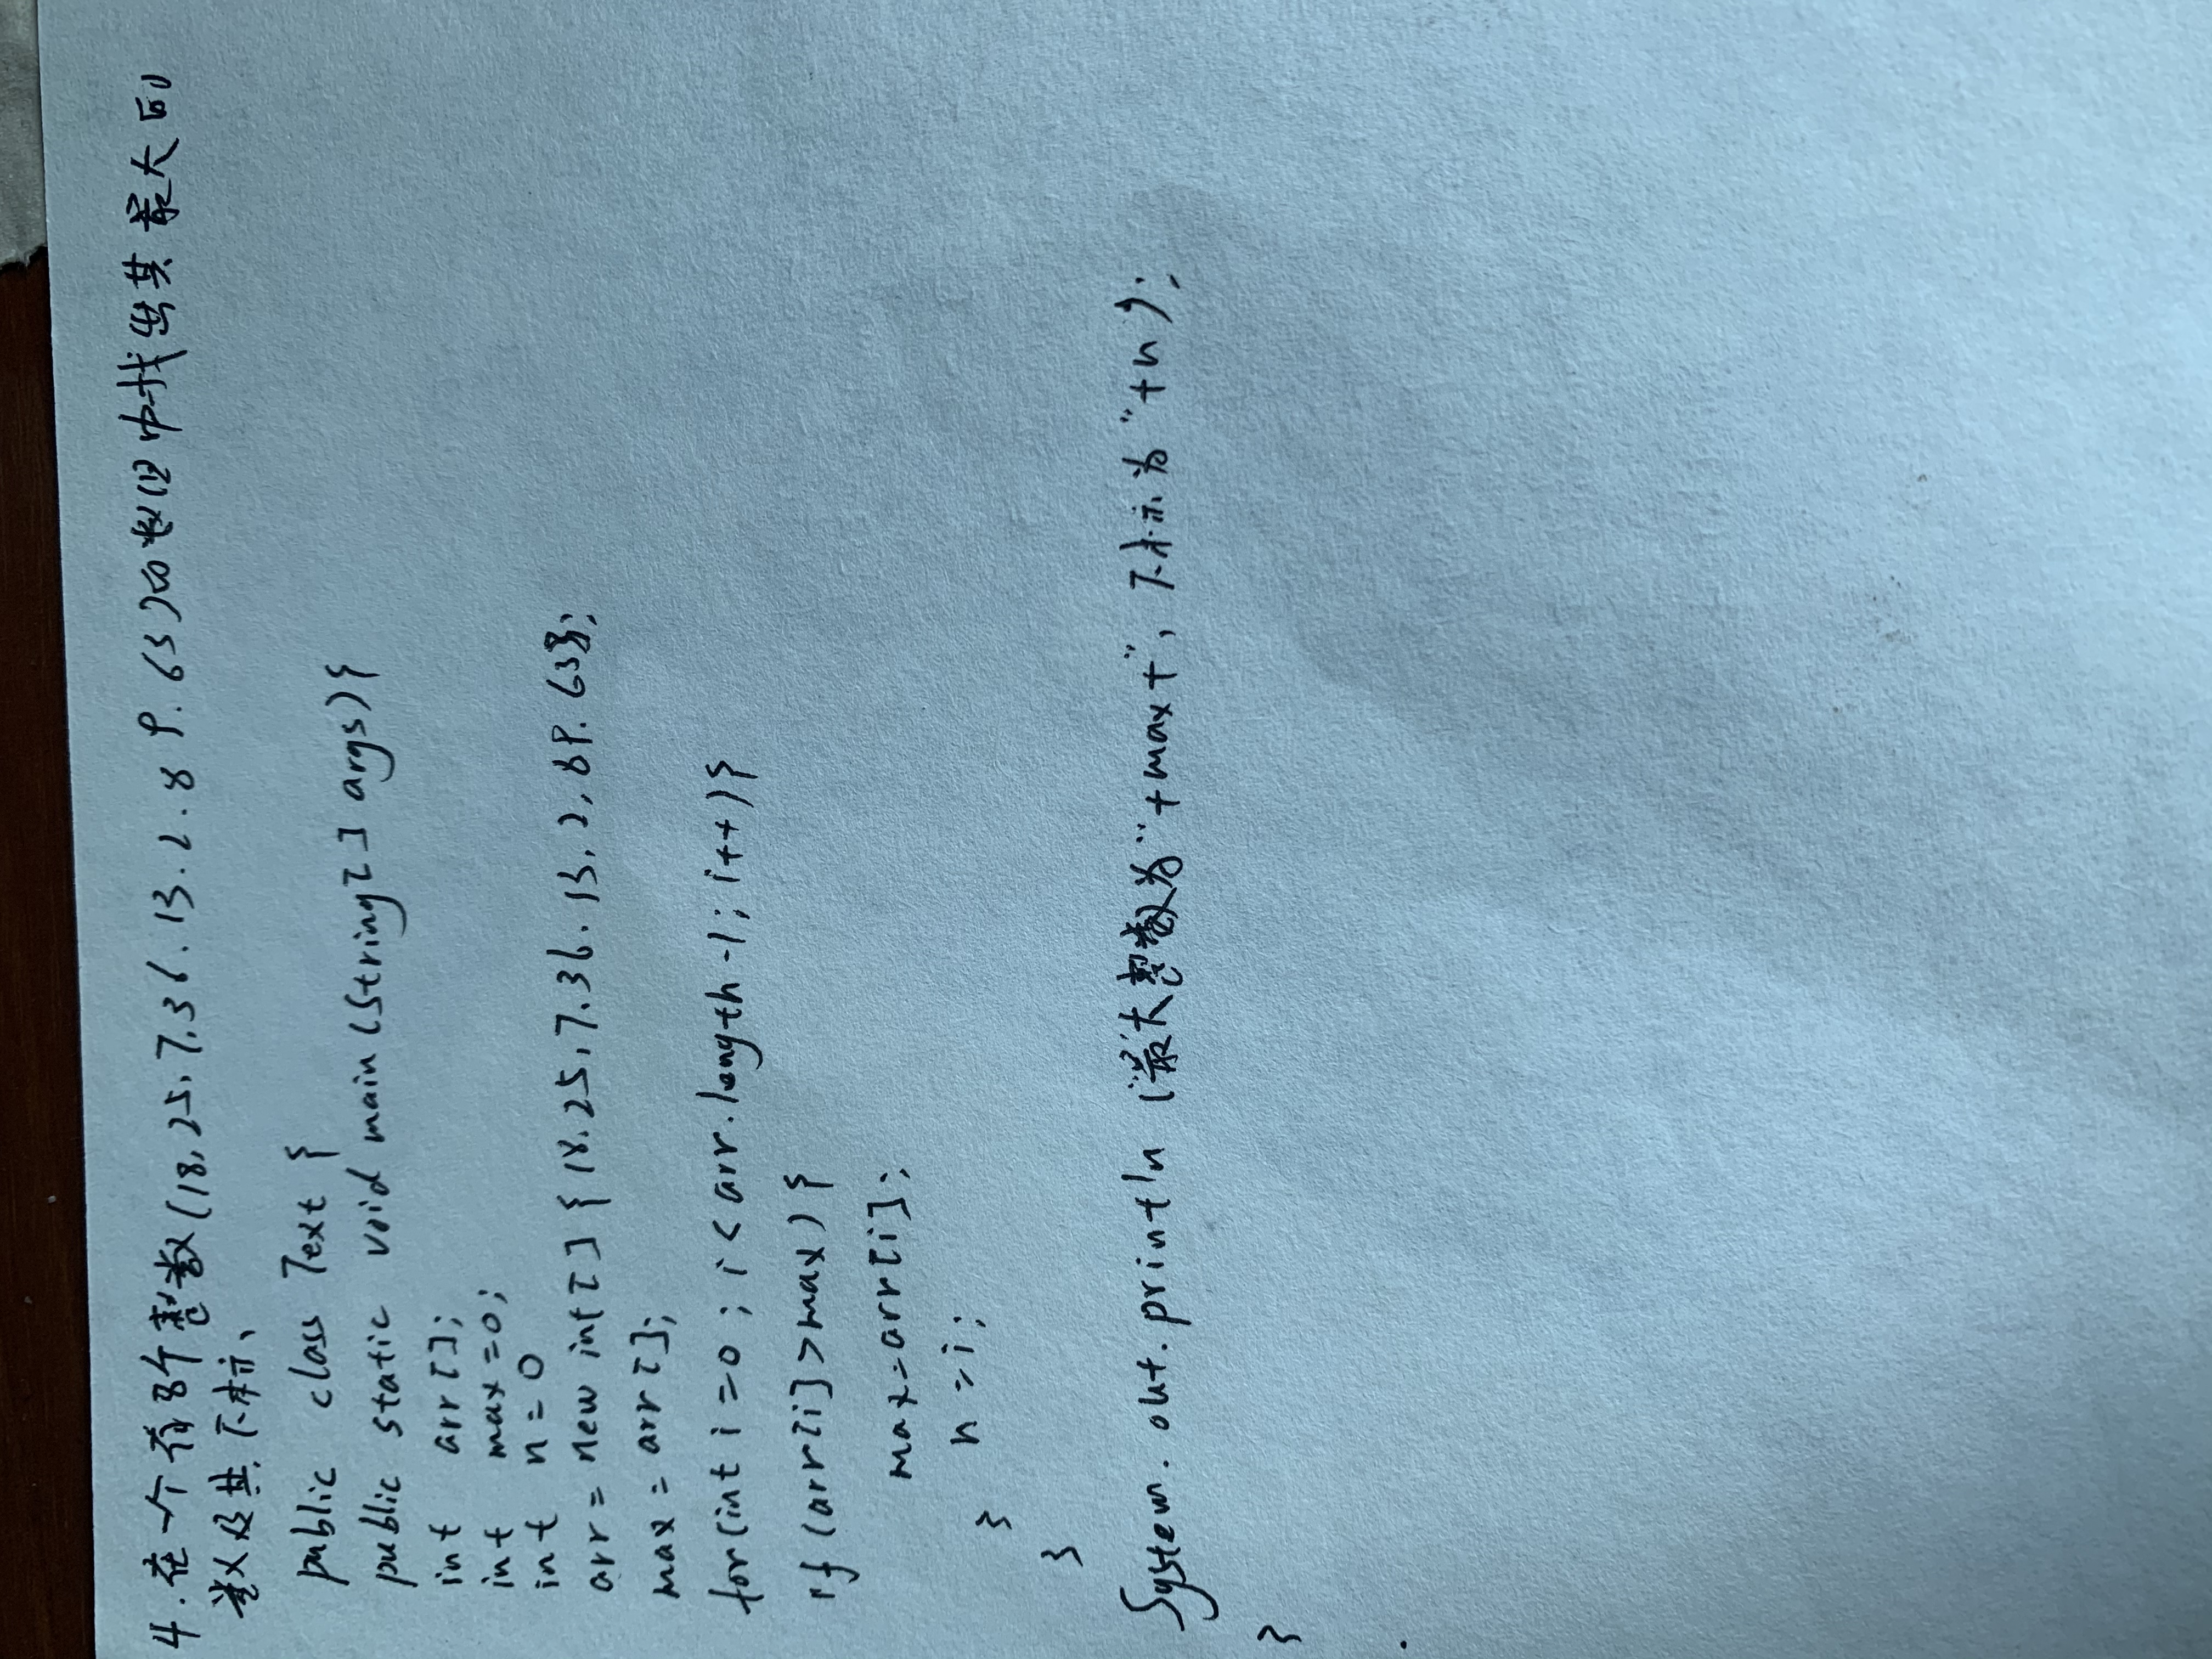 4.在一个有8个整数(18,25,7,36,13,2,89,63)的数组中找出其最大的
数及其下标、
public class Text {
public static void main(String[] args){
int arr[];
int max=0;
int n=0
arr = new int[]{18,25,7,36,13,2,89,63};
max = arr[];
for(int i=0;i<arr.length-1;i++){
if(arr[i]>max){
max=arr[i];
n=i;
}
}
System.out.println("最大整数为"+max+",下标为"+n);
}